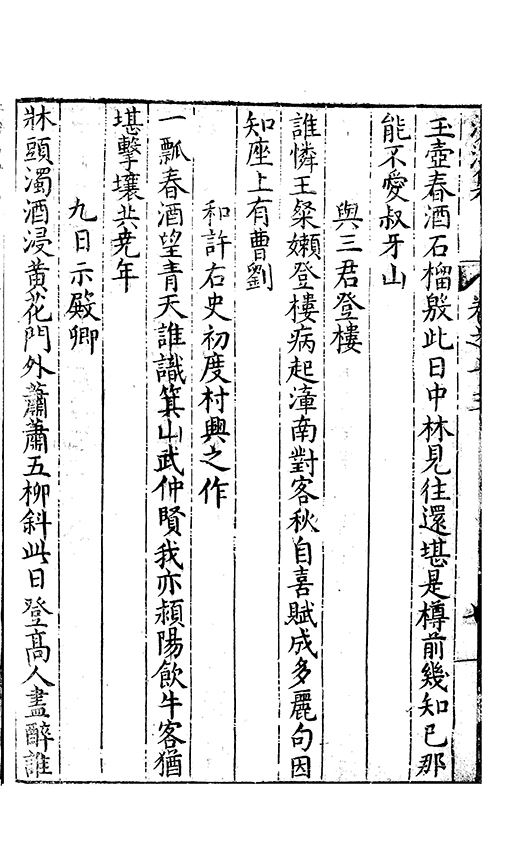 玉壺春酒石榴殷此日中林見往還堪是樽前幾知已那
能不愛叔牙山
與三君登樓
誰憐王粲嬾登樓病起漳南對客秋自喜賦成多麗句因
知座上有曹劉
和許右史初度村興之作
一瓢春酒望青天誰識箕山武仲賢我亦潁陽飲牛客猶
堪擊壤共堯年
九日示殿卿
牀頭濁酒浸黄花門外蕭蕭五柳斜此日登高人盡醉誰